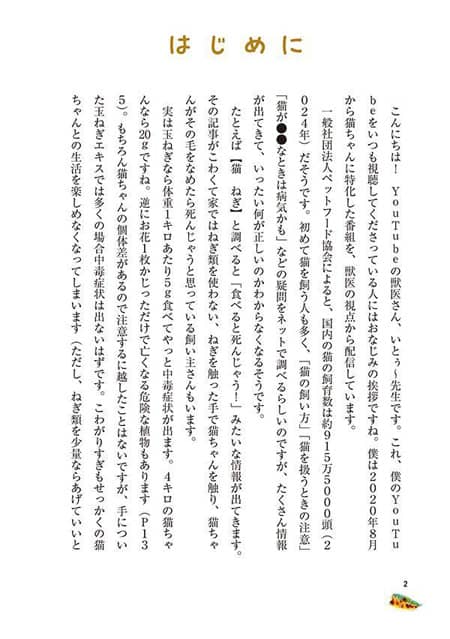 はじめに
こんにちは！　YouTubeの獣医さん、いとぅ〜先生です。これ、僕のYouTu
beをいつも視聴してくださっている人にはおなじみの挨拶ですね。僕は2020年8月
から猫ちゃんに特化した番組を、獣医の視点から配信しています。
一般社団法人ペットフード協会によると、国内の猫の飼育数は約915万5000頭（2
024年）だそうです。初めて猫を飼う人も多く、「猫の飼い方」「猫を扱うときの注意」
「猫が●●なときは病気かも」などの疑問をネットで調べるらしいのですが、たくさん情報
が出てきて、いったい何が正しいのかわからなくなるそうです。
たとえば【猫　ねぎ】と調べると「食べると死んじゃう！」みたいな情報が出てきます。
その記事がこわくて家ではねぎ類を使わない、ねぎを触った手で猫ちゃんを触り、猫ちゃ
んがその毛をなめたら死んじゃうと思っている飼い主さんもいます。
実は玉ねぎなら体重1キロあたり5g食べてやっと中毒症状が出ます。4キロの猫ちゃ
んなら20gですね。逆にお花1枚かじっただけで亡くなる危険な植物もあります（P13
5）。もちろん猫ちゃんの個体差があるので注意するに越したことはないですが、手につい
た玉ねぎエキスでは多くの場合中毒症状は出ないはずです。こわがりすぎもせっかくの猫
ちゃんとの生活を楽しめなくなってしまいます（ただし、ねぎ類を少量ならあげていいと
2